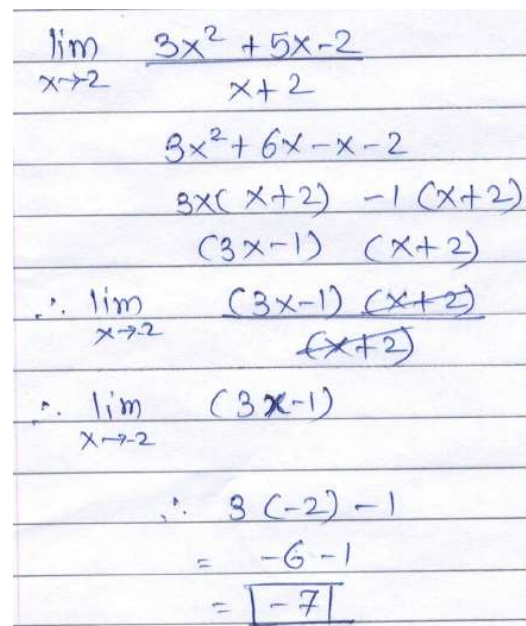 lim 3x² + 5x - 2
x→-2 x + 2
3x² + 6x - x - 2
3x( x+2) - 1 (x+2)
(3x-1) (x+2)
∴ lim (3x-1) (x+2)
x→-2 (x+2)
∴ lim (3x-1)
x→-2
∴ 3 (-2) - 1
= -6 - 1
= -7